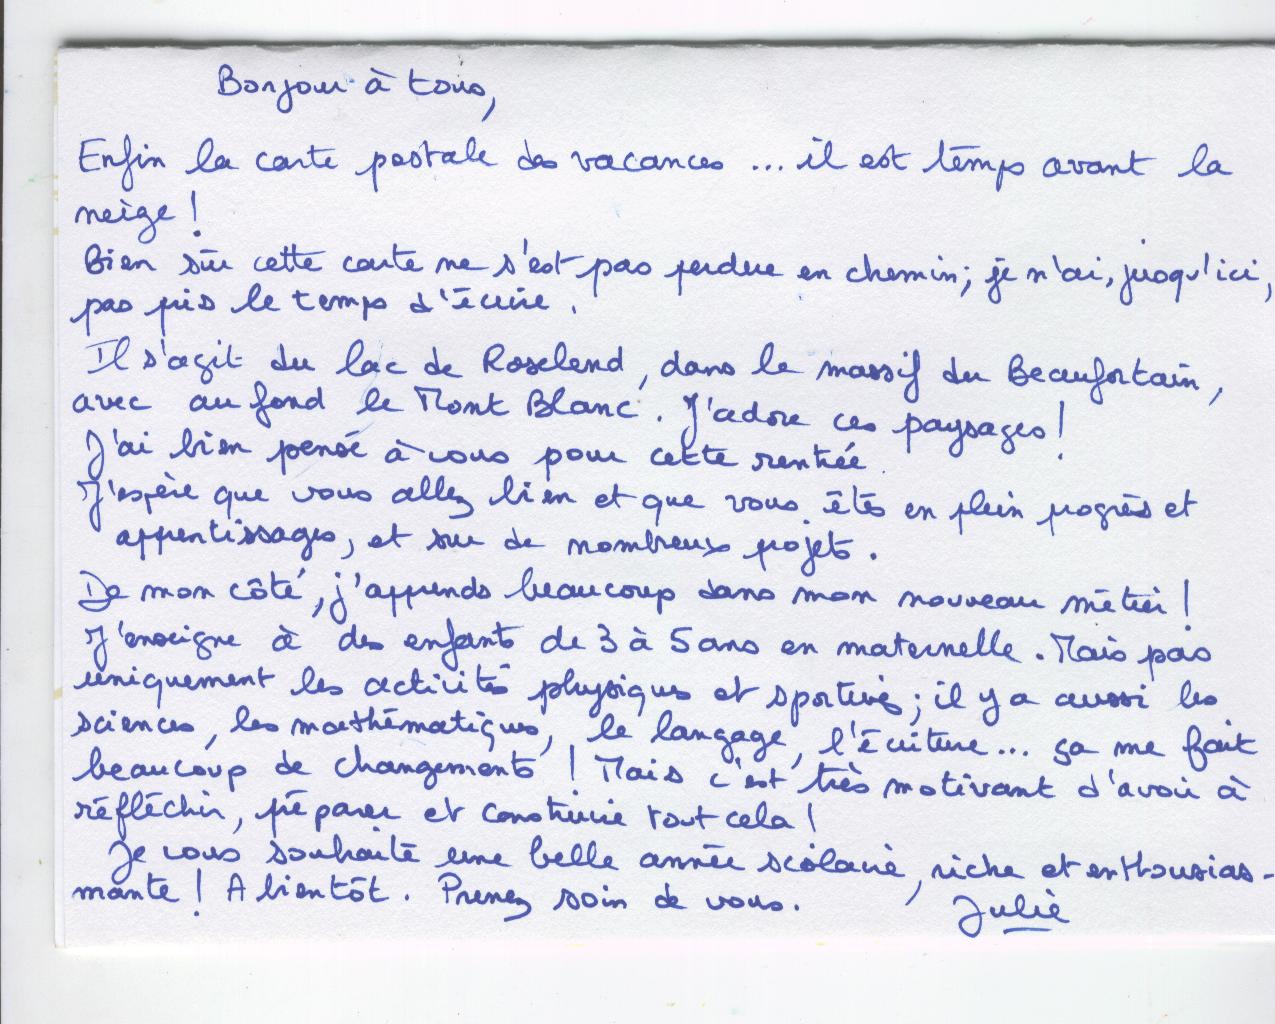 Bonjour à tous,
Enfin la carte postale des vacances ... il est temps avant la
neige !
Bien sûr cette carte ne s'est pas perdue en chemin; je n'ai, jusqu'ici,
pas pris le temps d'écrire.
Il s'agit du lac de Roselend, dans le massif du Beaufortain,
avec au fond le Mont Blanc. J'adore ces paysages !
J'ai bien pensé à vous pour cette rentrée.
J'espère que vous allez bien et que vous êtes en plein progrès et
apprentissages, et sur de nombreux projets.
De mon côté, j'apprends beaucoup dans mon nouveau métier !
J'enseigne à des enfants de 3 à 5 ans en maternelle. Mais pas
uniquement les activités physiques et sportives; il y a aussi les
sciences, les mathématiques, le langage, l'écriture... ça me fait
beaucoup de changements ! Mais c'est très motivant d'avoir à
réfléchir, préparer et construire tout cela !
Je vous souhaite une belle année scolaire, riche et enthousias-
mante ! A bientôt. Prenez soin de vous.
Julie